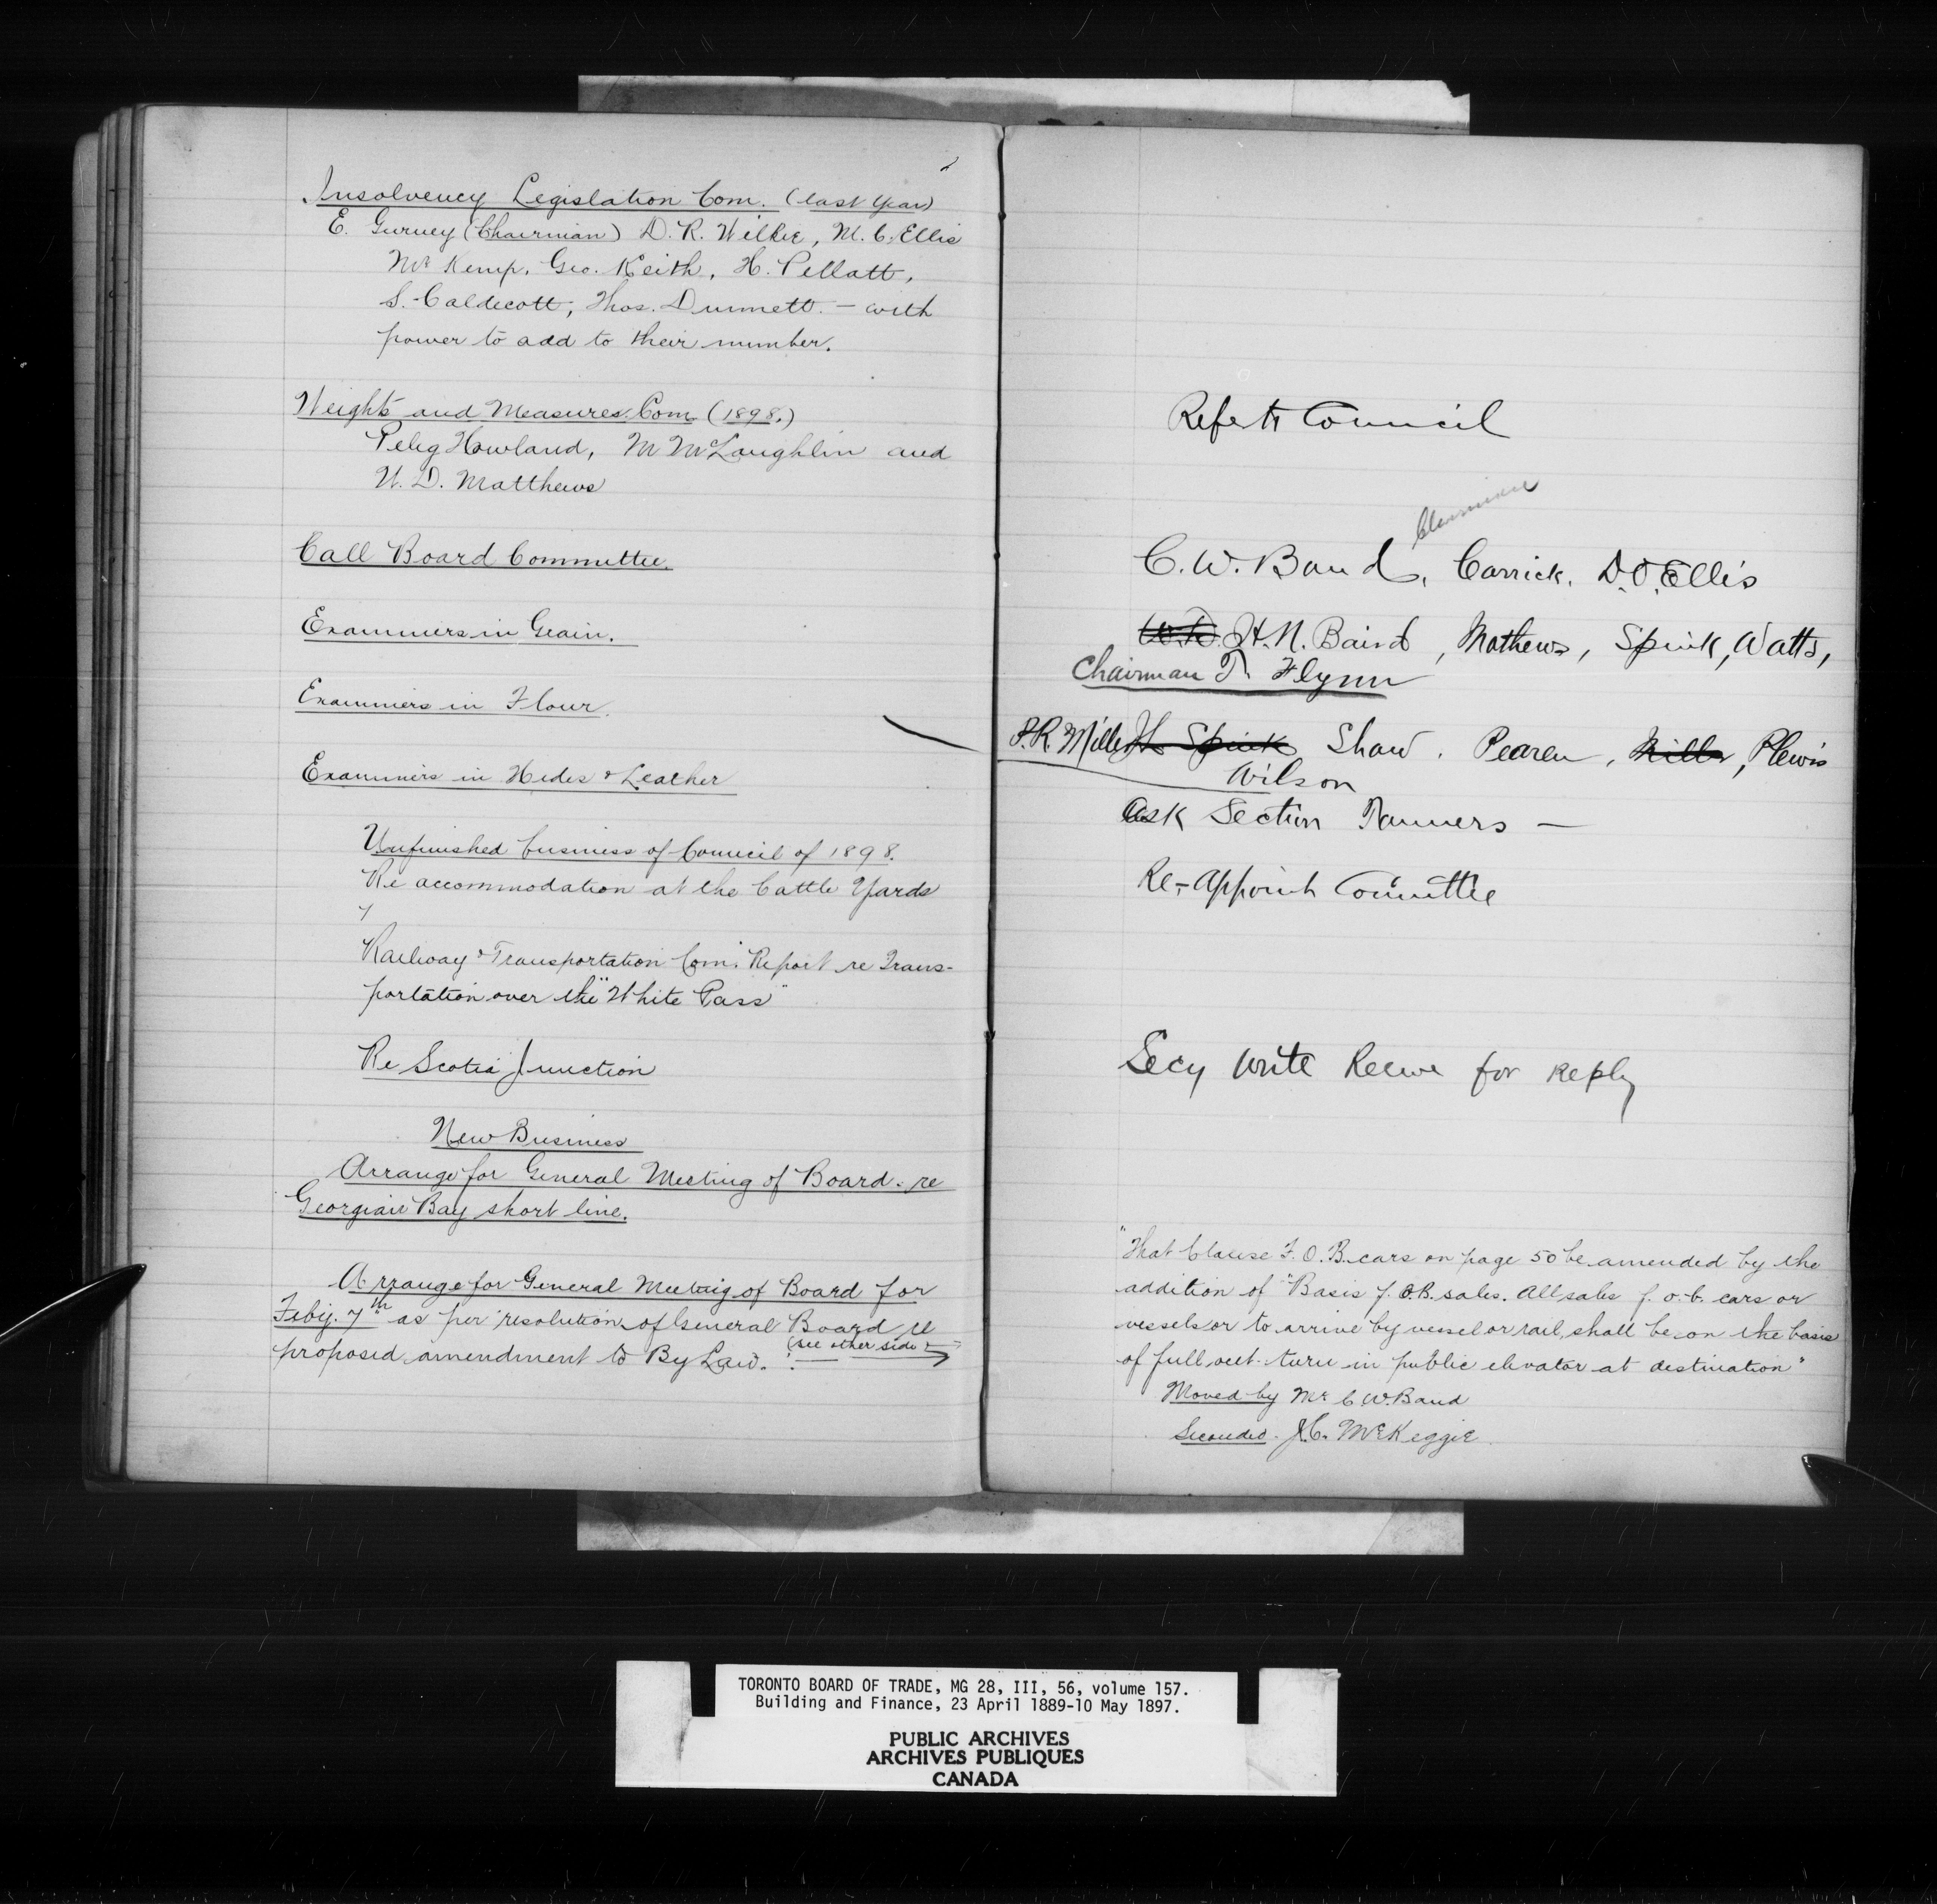 Insolvency Legislation Com. (last year)
E. Gurney (Chairman) D. R. Wilkie, M. C. Ellis
Mr Kemp, Geo. Keith, H. Pellatt,
S. Caldecott, Thos. Dunnett. – with
power to add to their number.
Weights and Measures Com (1898.)
Peleg Howland, M McLaughlin and
W. D. Matthews
Call Board Committee.
Examiners in Grain.
Examiners in Flour.
Examiners in Hides & Leather
Unfinished business of Council of 1898.
Re accommodation at the Cattle Yards
Railway & Transportation Com. Report re Trans-
portation over the "White Pass"
Re Scotia Junction
New Business
Arrange for General Meeting of Board. re
Georgian Bay short line.
Arrange for General Meeting of Board for
Feby. 7th as per resolution of General Board re
(see other side
proposed amendment to By Law.
Refer to Council
Chairman
C. W. Band, Carrick, D. O. Ellis
H. N. Baird, Mathews, Spink, Watts,
Chairman T. Flynn
P. R. Miller H Spink Shaw. Pearen, Mills, Plewis
Wilson
Ask Section Tanners —
Re-Appoint Committee
Secy write Reeve for reply
"That Clause F. O. B. cars on page 50 be amended by the
addition of "Basis f. O.B. sales. All sales f. o. b. cars or
vessels or to arrive by vessel or rail, shall be on the basis
of full out-turn in public elevator at destination"
Moved by Mr C. W. Band
Seconded. J. C. McKeggie
TORONTO BOARD OF TRADE, MG 28, III, 56, volume 157.
Building and Finance, 23 April 1889-10 May 1897.
PUBLIC ARCHIVES
ARCHIVES PUBLIQUES
CANADA